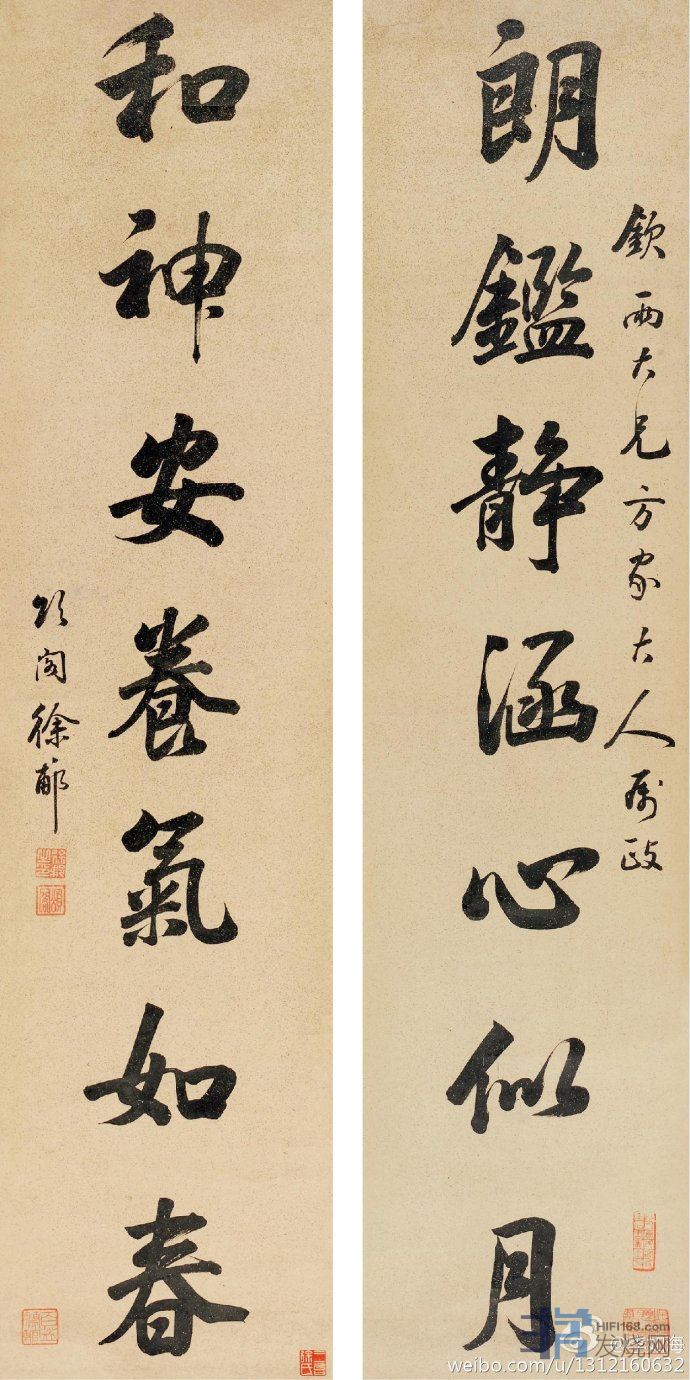 朗鑑靜涵心似月
欽兩大兄方家大人屬政
和神安養氣如春
頌閣徐郙
HIFI168.com
发烧网
weibo.com/u/1312160632